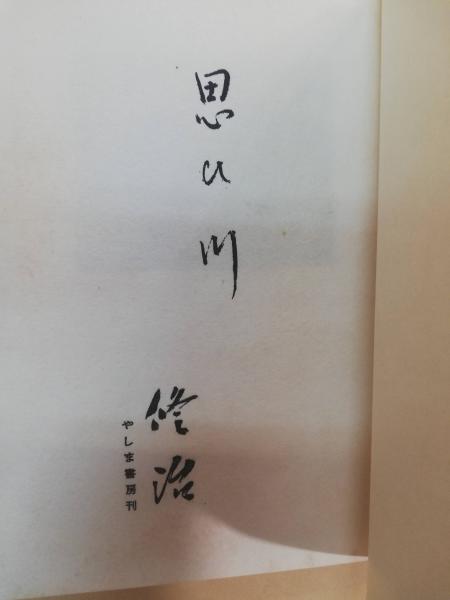 思ひ川
修治
やしま書房刊